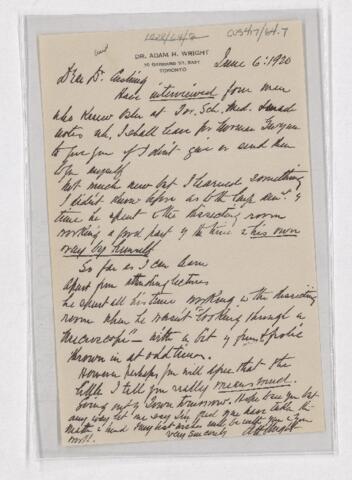 CUS417/64.7
DR. ADAM H. WRIGHT
30 GERRARD ST. EAST
TORONTO
June 6: 1920
Dear Dr. Cushing
Have interviewed four men
who knew Osler at Tor. Sch. Med. & made
notes wh. I shall leave for Norman Gwyn
to give you if I don't give or send them
to you myself
Not much new but I learned something
I didn't know before as to the large am't. of
time he spent in the dissecting room
working a good part of the time in his own
way by himself
So far as I can learn
apart from attending lectures
he spent all his time working in the dissecting
room when he wasn't "looking through a
microscope" – with a bit of fun & frolic
thrown in at odd times.
However perhaps you will agree that the
little I tell you really means much.
Going out of Town tomorrow. Hope to see you but
any way let me say I'm glad you have taken this
matter in hand. My best wishes will be with you in your
work.
Very sincerely
A H Wright